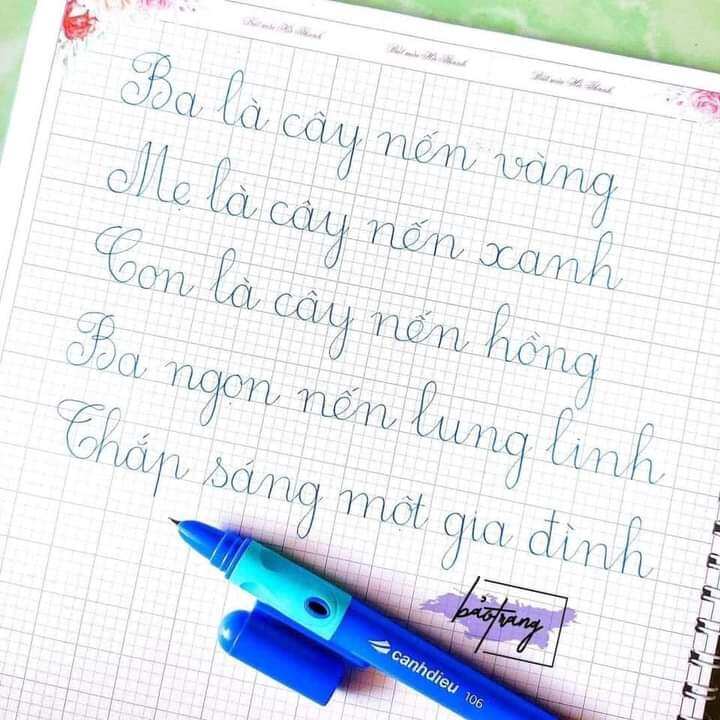 Bút mài Hà Thanh Bút mài Hà Thanh Bút mài Hà Thanh
Ba là cây nến vàng
Mẹ là cây nến xanh
Con là cây nến hồng
Ba ngọn nến lung linh
Thắp sáng một gia đình
bảotrang
canhdieu 106